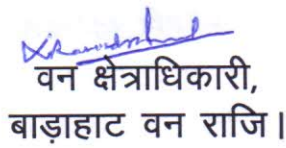 वन क्षेत्राधिकारी,
बाड़ाहाट वन राजि।